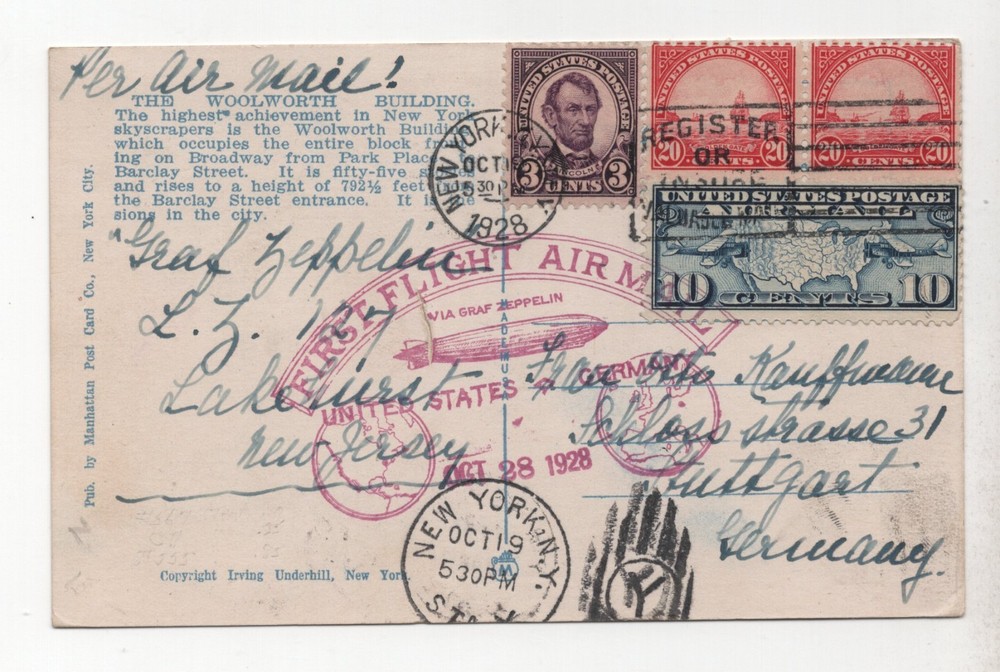 Per Air Mail!
THE WOOLWORTH BUILDING.
The highest achievement in New York
skyscrapers is the Woolworth Buildi
which occupies the entire block fr
ing on Broadway from Park Plac
Barclay Street. It is fifty-five
and rises to a height of 792½ feet
the Barclay Street entrance. It is
sions in the city.
Pub. by Manhattan Post Card Co., New York City.
"Graf Zeppelin
L.Z. 127
Lakehurst
New Jersey
Copyright Irving Underhill, New York.
UNITED STATES POSTAGE
LINCOLN
3 CENTS 3
UNITED STATES POSTAGE
20 CENTS 20
UNITED STATES POSTAGE
20 CENTS 20
UNITED STATES POSTAGE
AIR MAIL
10 CENTS 10
NEW YORK, N.Y.
OCT 19
5 30 P
1928
REGISTER
OR
INSURE
FIRST FLIGHT AIR MAIL
VIA GRAF ZEPPELIN
UNITED STATES GERMANY
OCT 28 1928
Frau Otto Kauffmann
Schloss strasse 31
Stuttgart
Germany.
NEW YORK, N.Y.
OCT 19
5 30 PM
STA. Y
Y